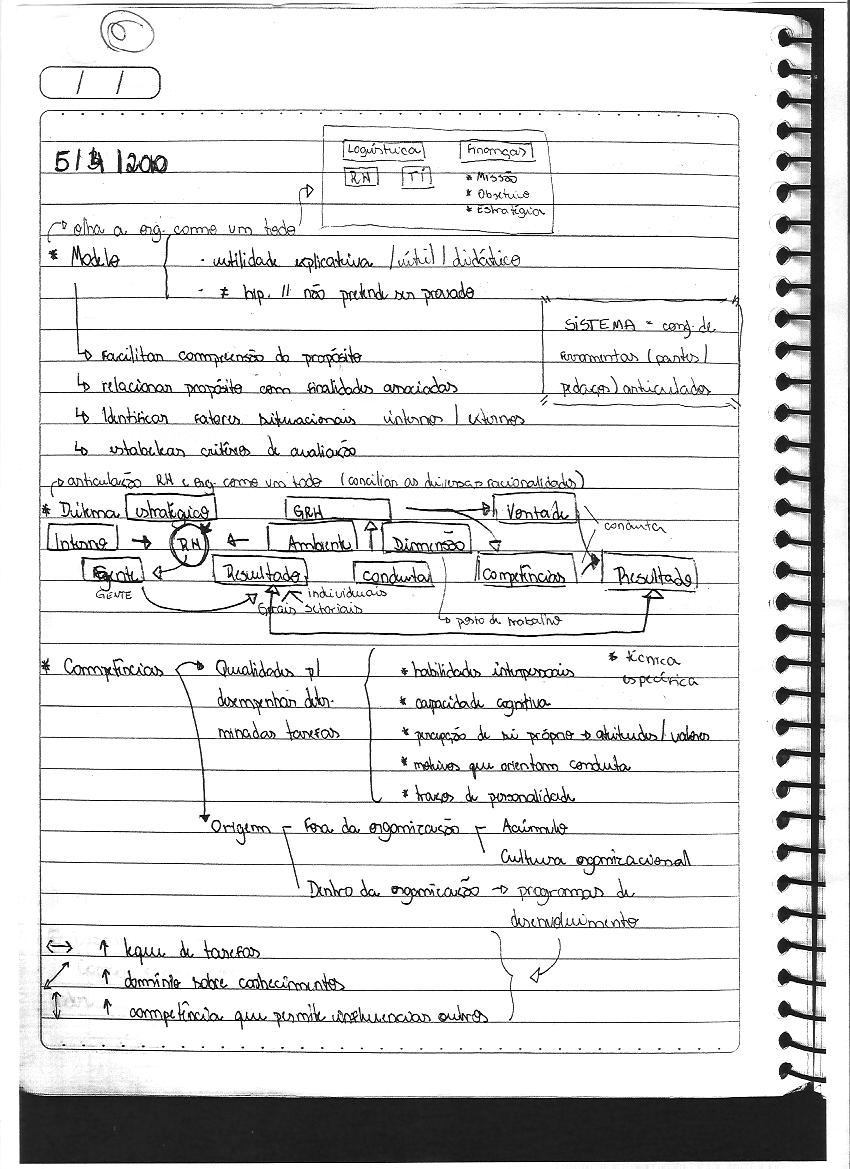 5/4/2010
Logística Finanças
RH TI * Missão
* Objetivo
* Estratégia
olha a org. como um todo
* Modelo - utilidade explicativa / útil / didático
- ≠ hip. // não pretende ser provado
SISTEMA = conj. de
ferramentas (partes/
pedaços) articulados
↳ Facilitar compreensão do propósito
↳ relacionar propósito com finalidades associadas
↳ Identificar fatores situacionais internos / externos
↳ estabelecer critérios de avaliação
articulação RH e org. como um todo (conciliar as diversas racionalidades)
* Dilema estratégico GRH → Vontade
conduta
Interno → RH ← Ambiente ↑ Dimensão
Gente Resultado conduta Competências Resultado
GENTE individuais
Gerais setoriais
↳ posto de trabalho
* Competências → Qualidades p/ * habilidades interpessoais * técnica
específica
desempenhar deter- * capacidade cognitiva
minadas tarefas * percepção de si próprio → atitudes/valores
* motivos que orientam conduta
* traços de personalidade
Origem - Fora da organização - Acúmulo
Cultura organizacional
Dentro da organização → programas de
desenvolvimento
↔ ↑ leque de tarefas
↑ domínio sobre conhecimentos
↕ ↑ competência que permite influenciar outros